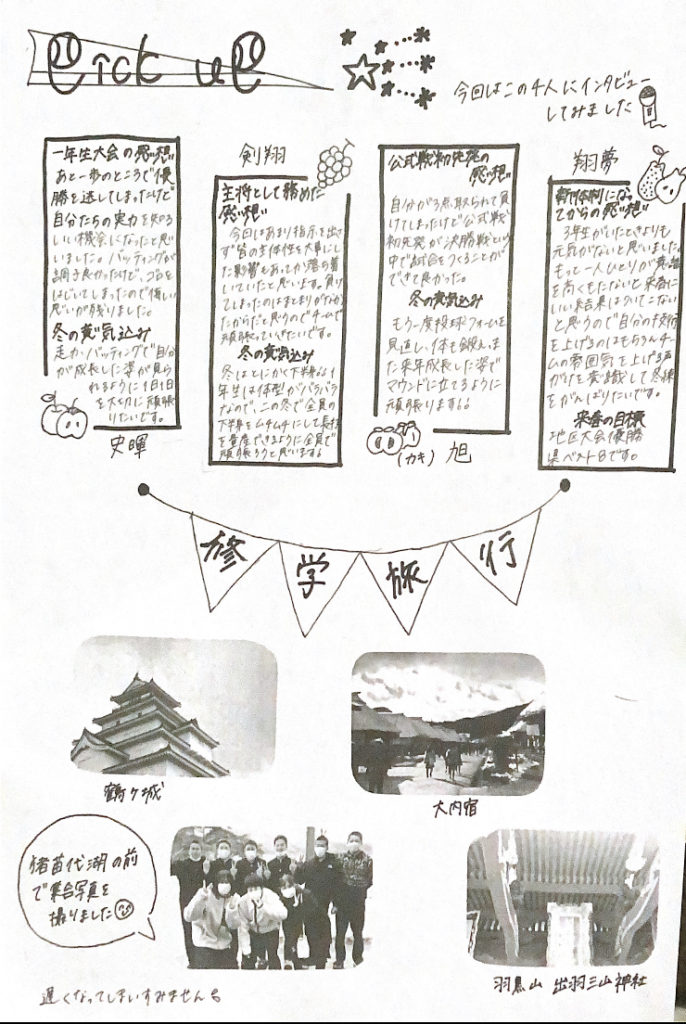 Pick up
今回はこの4人にインタビュー
してみました
一年生大会の感想
あと一歩のところで優
勝を逃してしまったけど
自分たちの実力を知る
いい機会になったと思
いました。バッティングが
調子良かったけど、
はじいてしまったので悔しい
思いが残りました。
冬の意気込み
走力、バッティングで自分
が成長した姿が見ら
れるように1日1日
を大切に頑張
りたいです。
史暉
剣翔
主将として務めた
感想
今回はあまり指示を出さ
ず皆の主体性を大事にし
た影響もあってか落ち着
いていたと思います。負け
てしまったのはまとまりがなかっ
たからだと思うのでチームで
頑張っていきたいです。
冬の意気込み
冬はとにかく下半身
年生は体型がバラバラ
なので、この冬で全員の
下半身をムチムチにして長打
を量産できるように全員で
頑張ろうと思います
公式戦初先発の
感想
自分が3点取られて負
けてしまったけど公式戦
初先発が決勝戦という
中で試合をつくることが
できて良かった。
冬の意気込み
もう一度投球フォームを
見直し、体も鍛えま
た来年成長した姿で
マウンドに立てるように
頑張ります
(カキ) 旭
翔夢
新体制になっ
てからの感想
3年生がいたときよりも
元気がないと思いました。
もっと一人ひとりが意識
を高くもたないと来春に
いい結果はついてこない
と思うので自分の技術
を上げるのはもちろんチー
ムの雰囲気を上げる声
がけを意識して冬練
をがんばりたいです。
来春の目標
地区大会優勝
県ベスト8です。
修学旅行
鶴ヶ城
大内宿
猪苗代湖の前
で集合写真を
撮りました
羽黒山 出羽三山神社
遅くなってしまいすみません